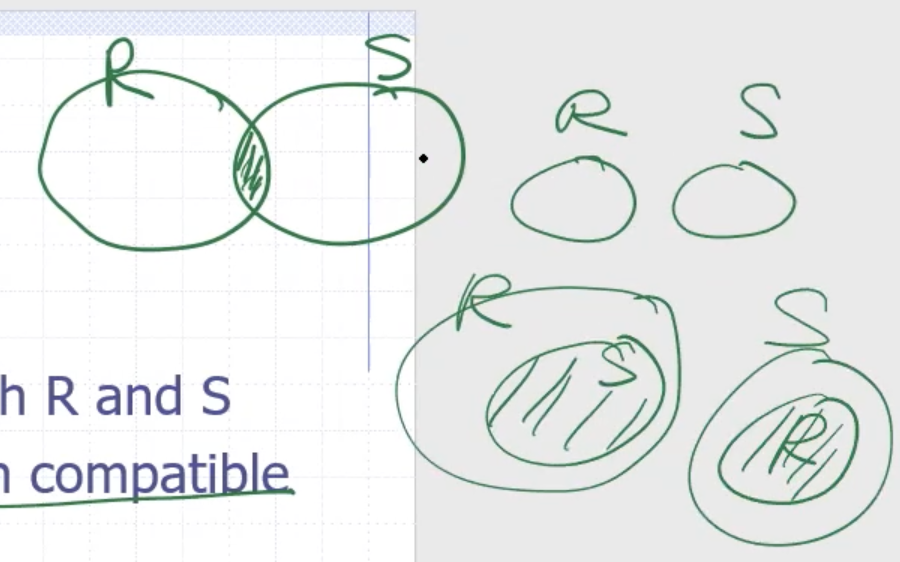 R S
R S
R S
S R
h R and S
n compatible